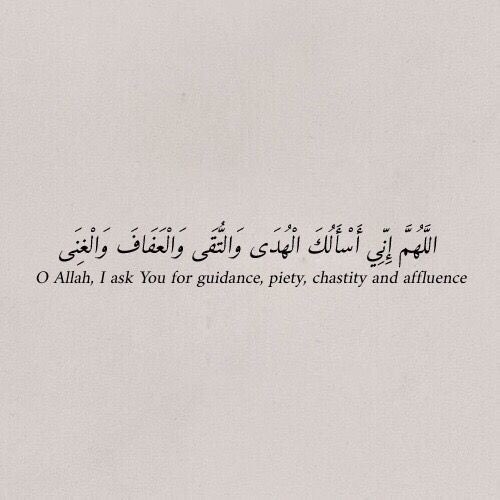 اللَّهُمَّ إِنِّي أَسْأَلُكَ الْهُدَى وَالتُّقَى وَالْعَفَافَ وَالْغِنَى
O Allah, I ask You for guidance, piety, chastity and affluence